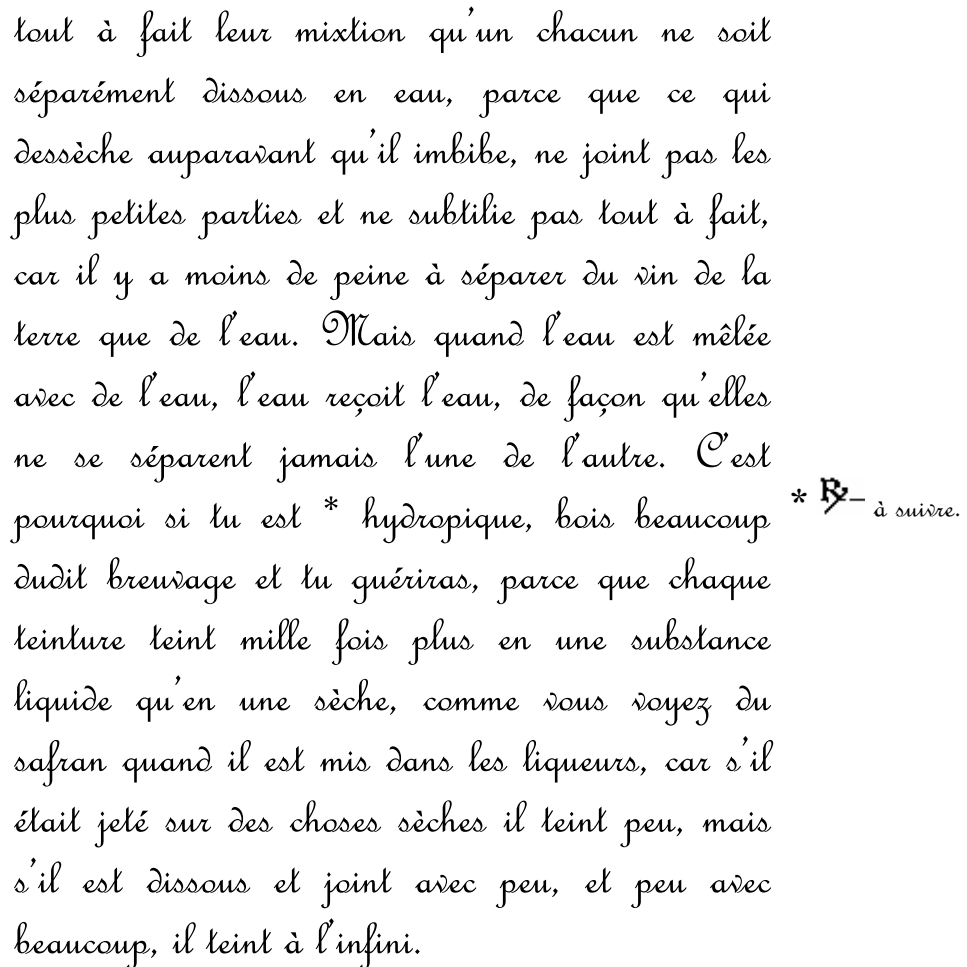 tout à fait leur mixtion qu'un chacun ne soit
séparément dissous en eau, parce que ce qui
dessèche auparavant qu'il imbibe, ne joint pas les
plus petites parties et ne subtilie pas tout à fait,
car il y a moins de peine à séparer du vin de la
terre que de l'eau. Mais quand l'eau est mêlée
avec de l'eau, l'eau reçoit l'eau, de façon qu'elles
ne se séparent jamais l'une de l'autre. C'est
pourquoi si tu est * hydropique, bois beaucoup
* ℞ à suivre.
dudit breuvage et tu guériras, parce que chaque
teinture teint mille fois plus en une substance
liquide qu'en une sèche, comme vous voyez du
safran quand il est mis dans les liqueurs, car s'il
était jeté sur des choses sèches il teint peu, mais
s'il est dissous et joint avec peu, et peu avec
beaucoup, il teint à l'infini.